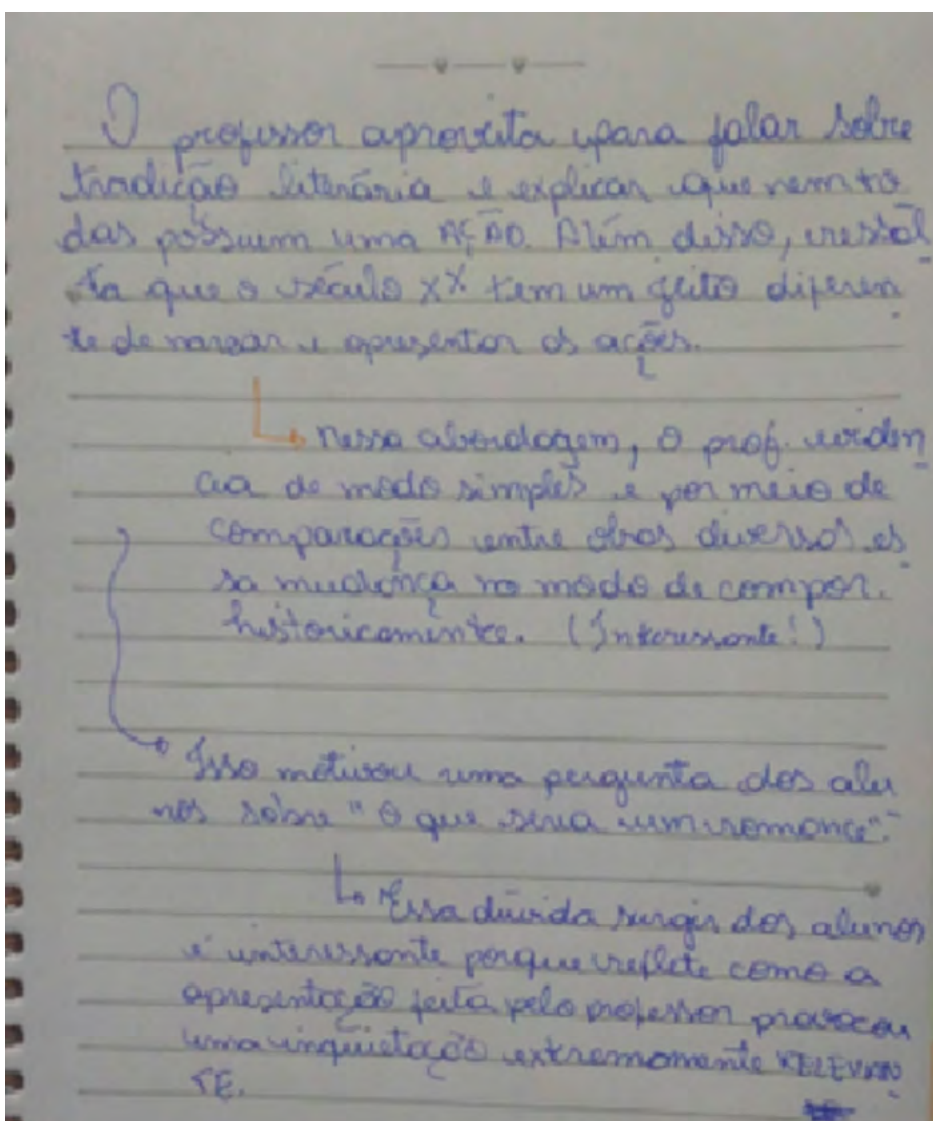 O professor aproveita para falar sobre
tradição literária e explicar que nem to
das possuem uma AÇÃO. Além disso, ressal
ta que o século XX tem um jeito diferen
te de narrar e apresentar as ações.
Nessa abordagem, o prof. eviden
cia de modo simples e por meio de
comparações entre obras diversas es
sa mudança no modo de compor.
historicamente. (Interessante!)
Isso motivou uma pergunta dos alu
nos sobre "O que seria um romance".
Essa dúvida surgir dos alunos
é interessante porque reflete como a
apresentação feita pelo professor provocou
uma inquietação extremamente RELEVAN
TE.